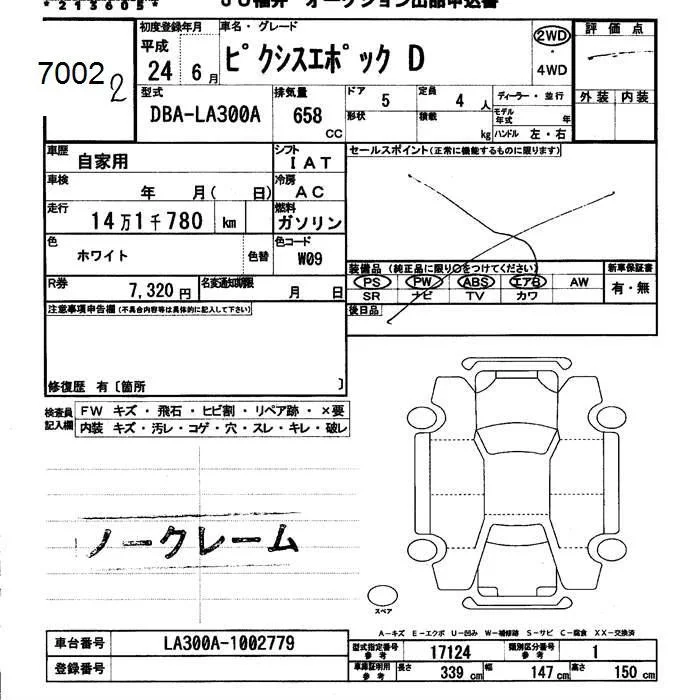 *213605*
JU福井 オークション出品申込書
7002 2
初度登録年月
平成
24 6月
車名・グレード
ピクシスエポック D
2WD
4WD
評価点
外装 内装
型式
DBA-LA300A
排気量
658
CC
ドア 5
形状
定員 4人
積載 kg
ディーラー・並行
モデル年式 年
ハンドル 左・右
車歴
自家用
シフト
IAT
車検
年 月( 日)
冷房
AC
走行
14万1千780 km
燃料
ガソリン
色
ホワイト
色替
色コード
W09
R券
7,320円
名変通知期限
月 日
セールスポイント(正常に機能するものに限ります)
装備品(純正品に限り○をつけてください)
新車保証書
PS PW ABS エアB AW
有・無
SR ナビ TV カワ
後日品
注意事項申告欄(不具合内容等は具体的に記入して下さい)
修復歴 有〔箇所 〕
検査員記入欄
FW キズ・飛石・ヒビ割・リペア跡・×要
内装 キズ・汚レ・コゲ・穴・スレ・キレ・破レ
ノークレーム
スペア
A-キズ E-エクボ U-凹み W-補修跡 S-サビ C-腐食 XX-交換済
車台番号
LA300A-1002779
登録番号
型式指定番号 参考 17124
類別区分番号 参考 1
車庫証明用 参考 長さ 339cm 幅 147cm 高さ 150cm